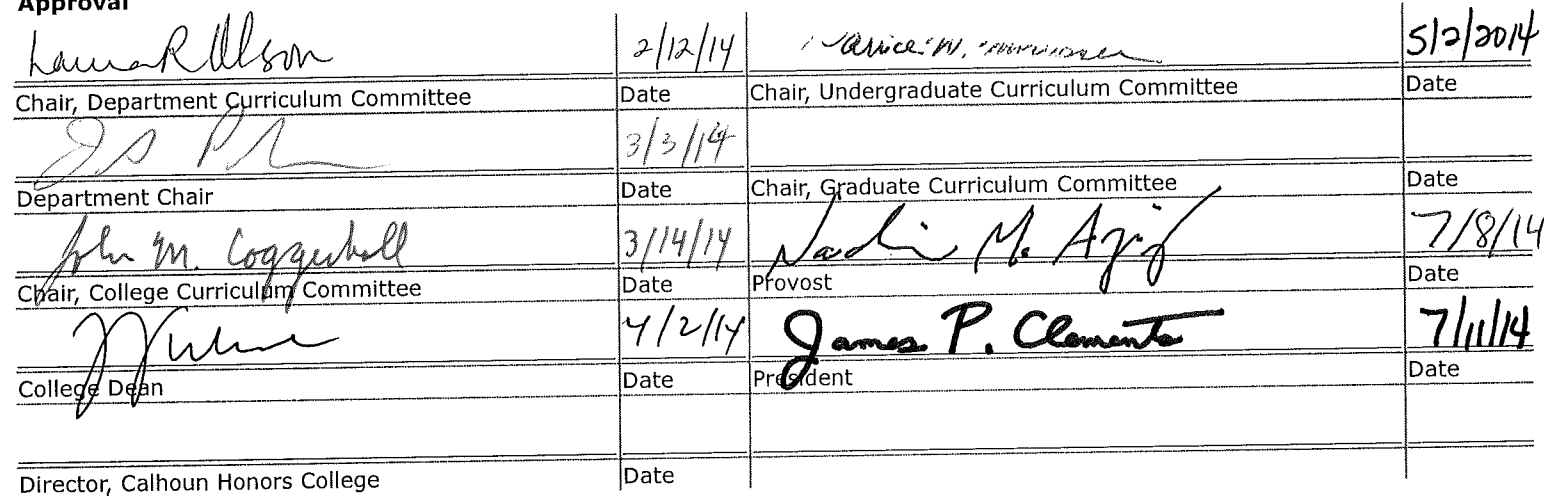 Approval
Laura R Olson 2/12/14 Janice W. 5/2/2014
Chair, Department Curriculum Committee Date Chair, Undergraduate Curriculum Committee Date
3/3/14
Department Chair Date Chair, Graduate Curriculum Committee Date
John M. Coggeshall 3/14/14 Nadim M. Aziz 7/8/14
Chair, College Curriculum Committee Date Provost Date
4/2/14 James P. Clements 7/11/14
College Dean Date President Date
Director, Calhoun Honors College Date